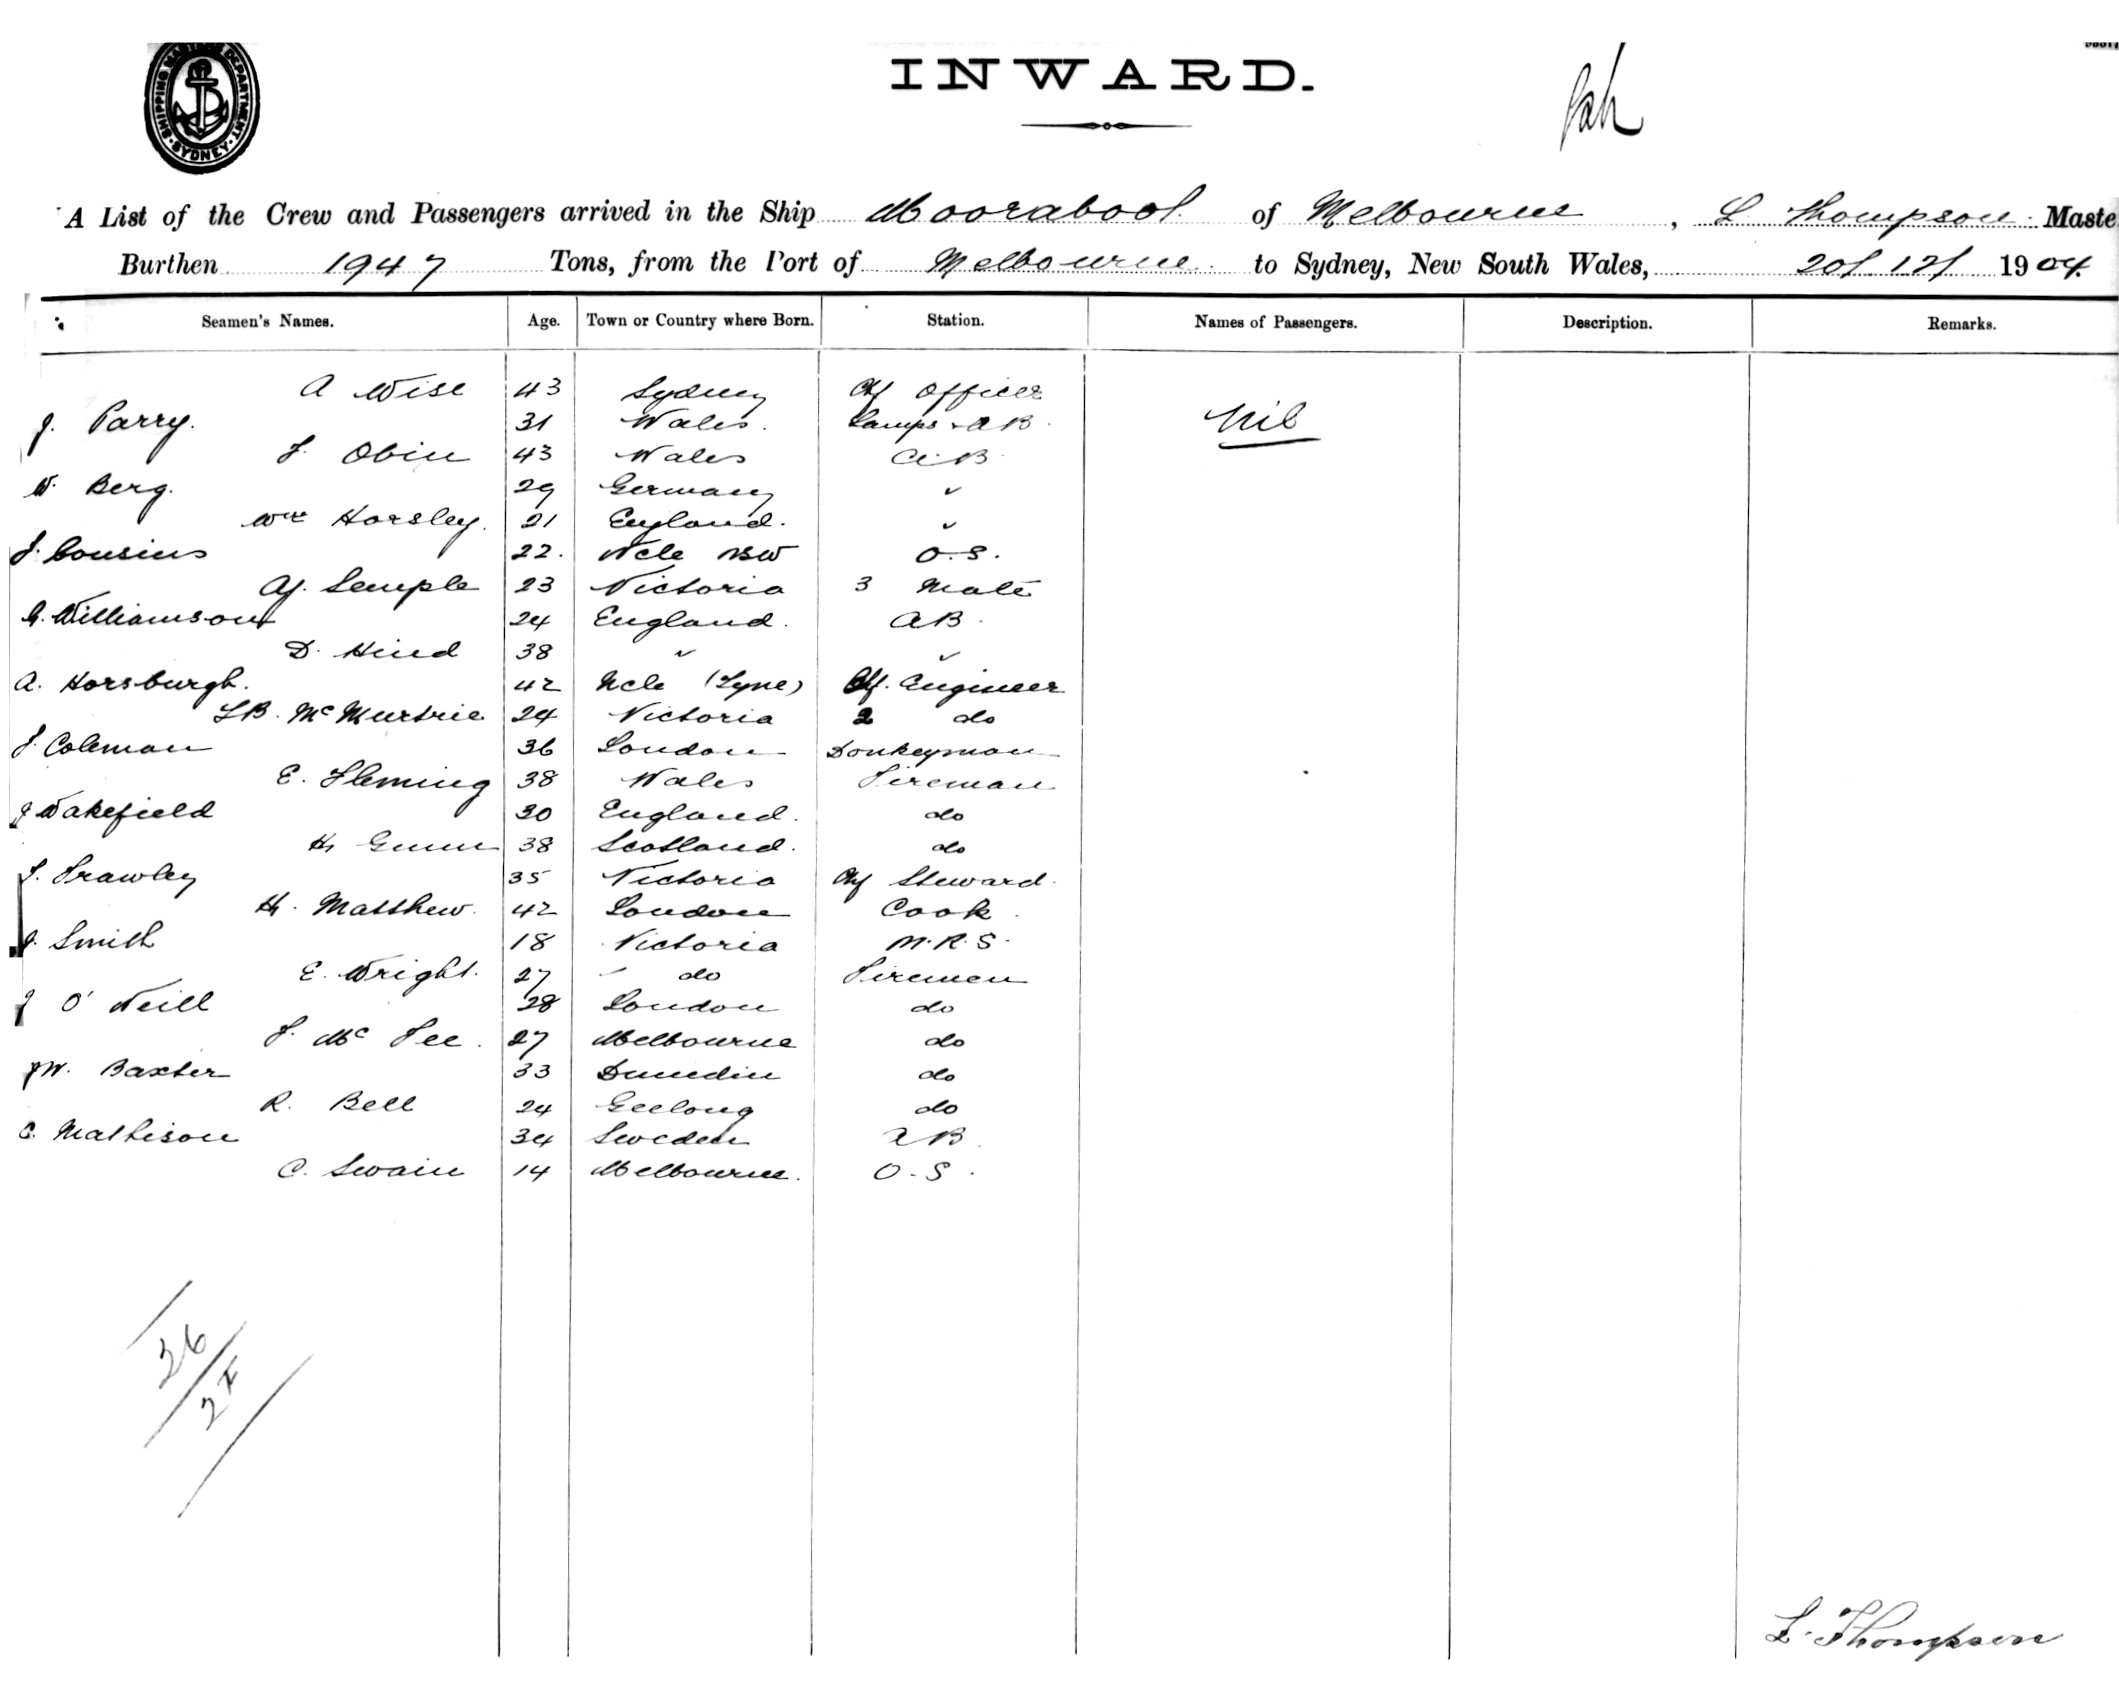 SHIPPING MASTERS DEPARTMENT · SYDNEY ·
INWARD.
A List of the Crew and Passengers arrived in the Ship Moorabool. of Melbourne, L Thompson. Maste
Burthen 1947 Tons, from the Port of Melbourne. to Sydney, New South Wales, 20/12/ 1904.
Seamen's Names. Age. Town or Country where Born. Station. Names of Passengers. Description. Remarks.
A Wise 43 Sydney Chf Officer
J. Parry. 31 Wales. Lamps & AB. Nil
J. Obin 43 Wales A.B.
W. Berg. 29 Germany "
Wm Horsley. 21 England. "
J. Cousins 22. Ncle NSW O.S.
Af. Semple 23 Victoria 3 Mate
G. Williamson 24 England. AB.
D. Hind 38 " "
A. Horsburgh. 42 Ncle (Tyne) Chf. Engineer
LB. McMurtrie 24 Victoria 2 do
J. Coleman 36 London Donkeyman
E. Fleming 38 Wales Fireman
J Wakefield 30 England. do
H Gunn 38 Scotland. do
T. Frawley 35 Victoria Chf Steward.
H. Matthew. 42 London Cook.
J. Smith 18 Victoria M.R.S.
E. Wright. 27 do Firemen
J O'Neill 28 London do
J. McFee. 27 Melbourne do
JW. Baxter 33 Dunedin do
R. Bell 24 Geelong do
C. Mathison 34 Sweden AB.
C. Swain 14 Melbourne. O-S.
26
L. Thompson